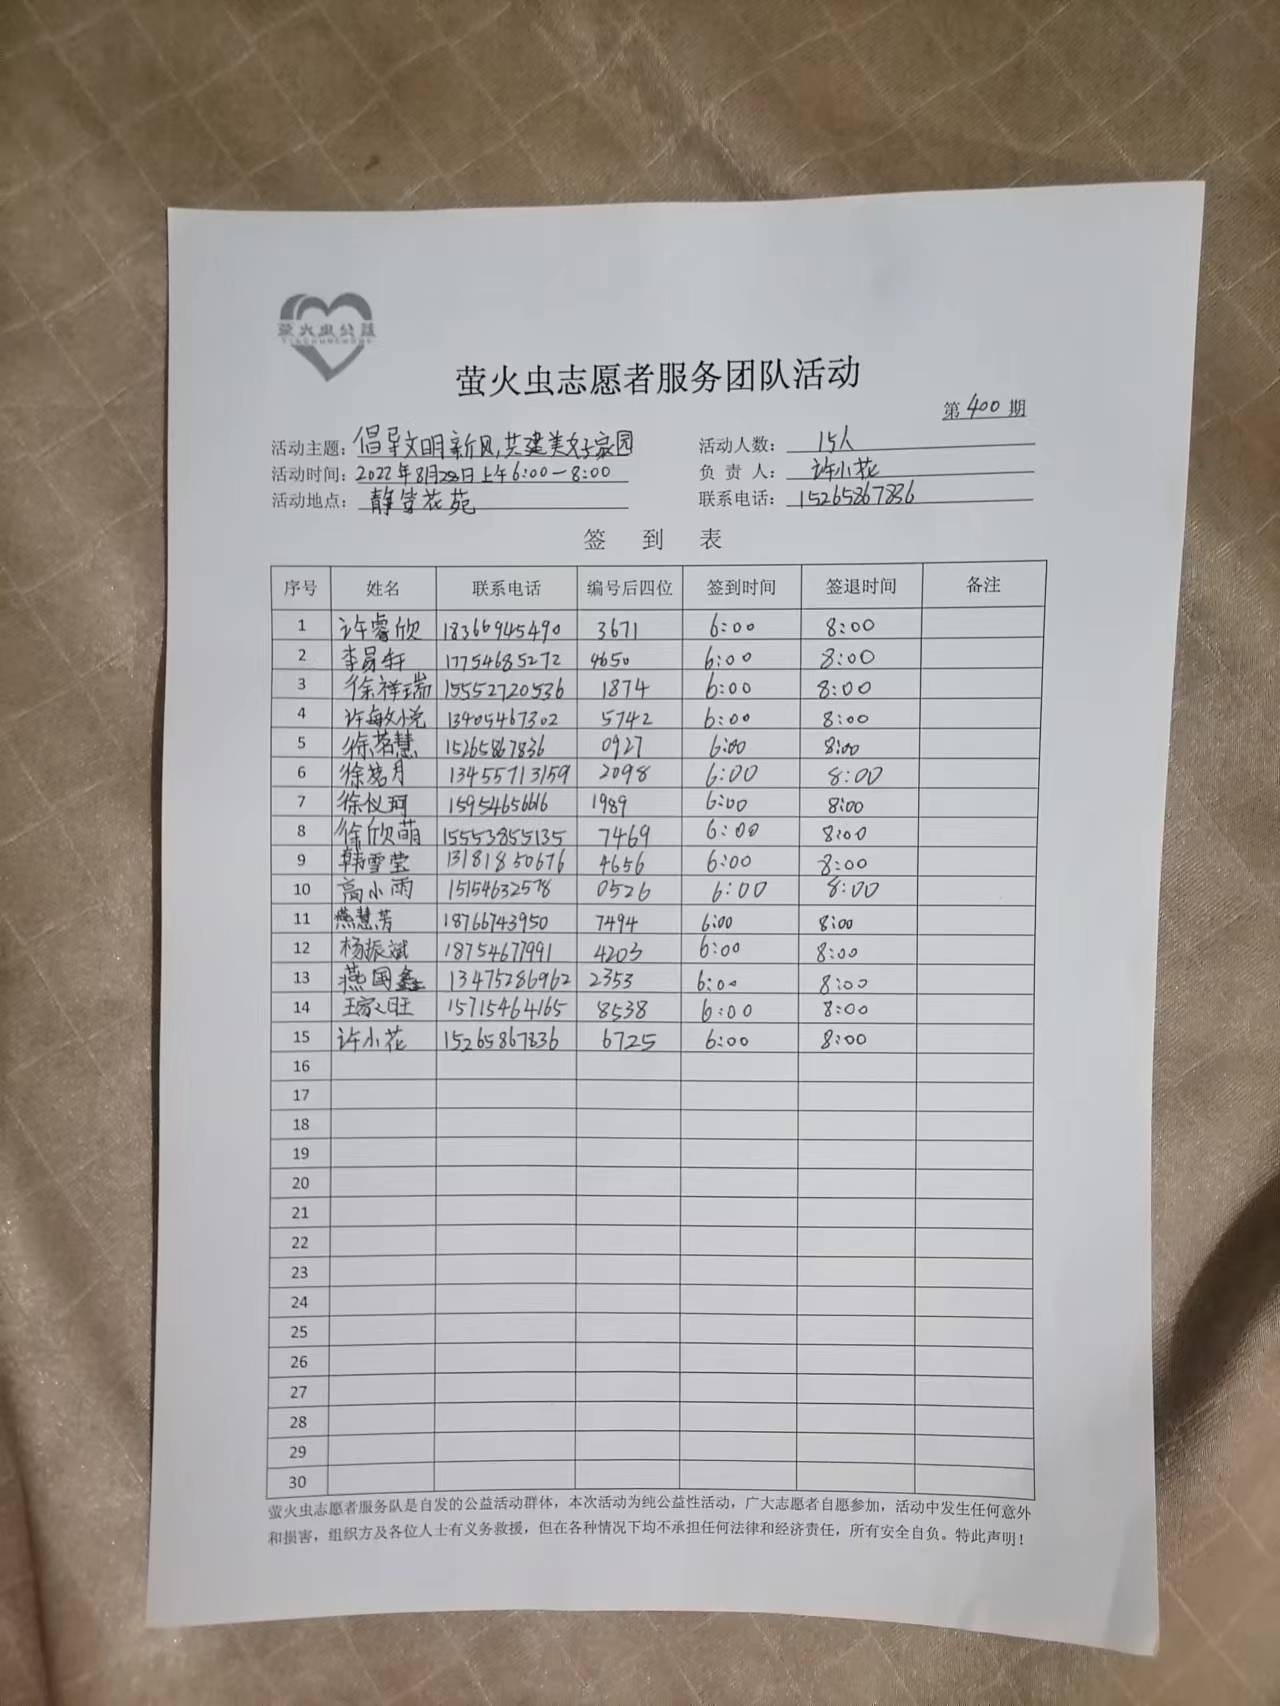 萤火虫公益
萤火虫志愿者服务团队活动
第 400 期
活动主题：倡导文明新风,共建美好家园 活动人数：15人
活动时间：2022年8月28日上午6:00-8:00 负 责 人：许小花
活动地点：静馨花苑 联系电话：15265867836
签 到 表
序号 姓名 联系电话 编号后四位 签到时间 签退时间 备注
1 许睿欣 18366945490 3671 6:00 8:00
2 李易轩 17754685272 4650 6:00 8:00
3 徐祥瑞 15552720536 1874 6:00 8:00
4 许敏悦 13405467302 5742 6:00 8:00
5 徐茗慧 15265867836 0927 6:00 8:00
6 徐茗月 13455713159 2098 6:00 8:00
7 徐仪珂 15954656616 1989 6:00 8:00
8 徐欣萌 15553855135 7469 6:00 8:00
9 韩雪莹 13181850676 4656 6:00 8:00
10 高小雨 15154632578 0526 6:00 8:00
11 燕慧芳 18766743950 7494 6:00 8:00
12 杨振斌 18754677991 4203 6:00 8:00
13 燕国鑫 13475286962 2353 6:00 8:00
14 王家旺 15715464165 8538 6:00 8:00
15 许小花 15265867836 6725 6:00 8:00
16
17
18
19
20
21
22
23
24
25
26
27
28
29
30
萤火虫志愿者服务队是自发的公益活动群体，本次活动为纯公益性活动，广大志愿者自愿参加，活动中发生任何意外
和损害，组织方及各位人士有义务救援，但在各种情况下均不承担任何法律和经济责任，所有安全自负。特此声明！